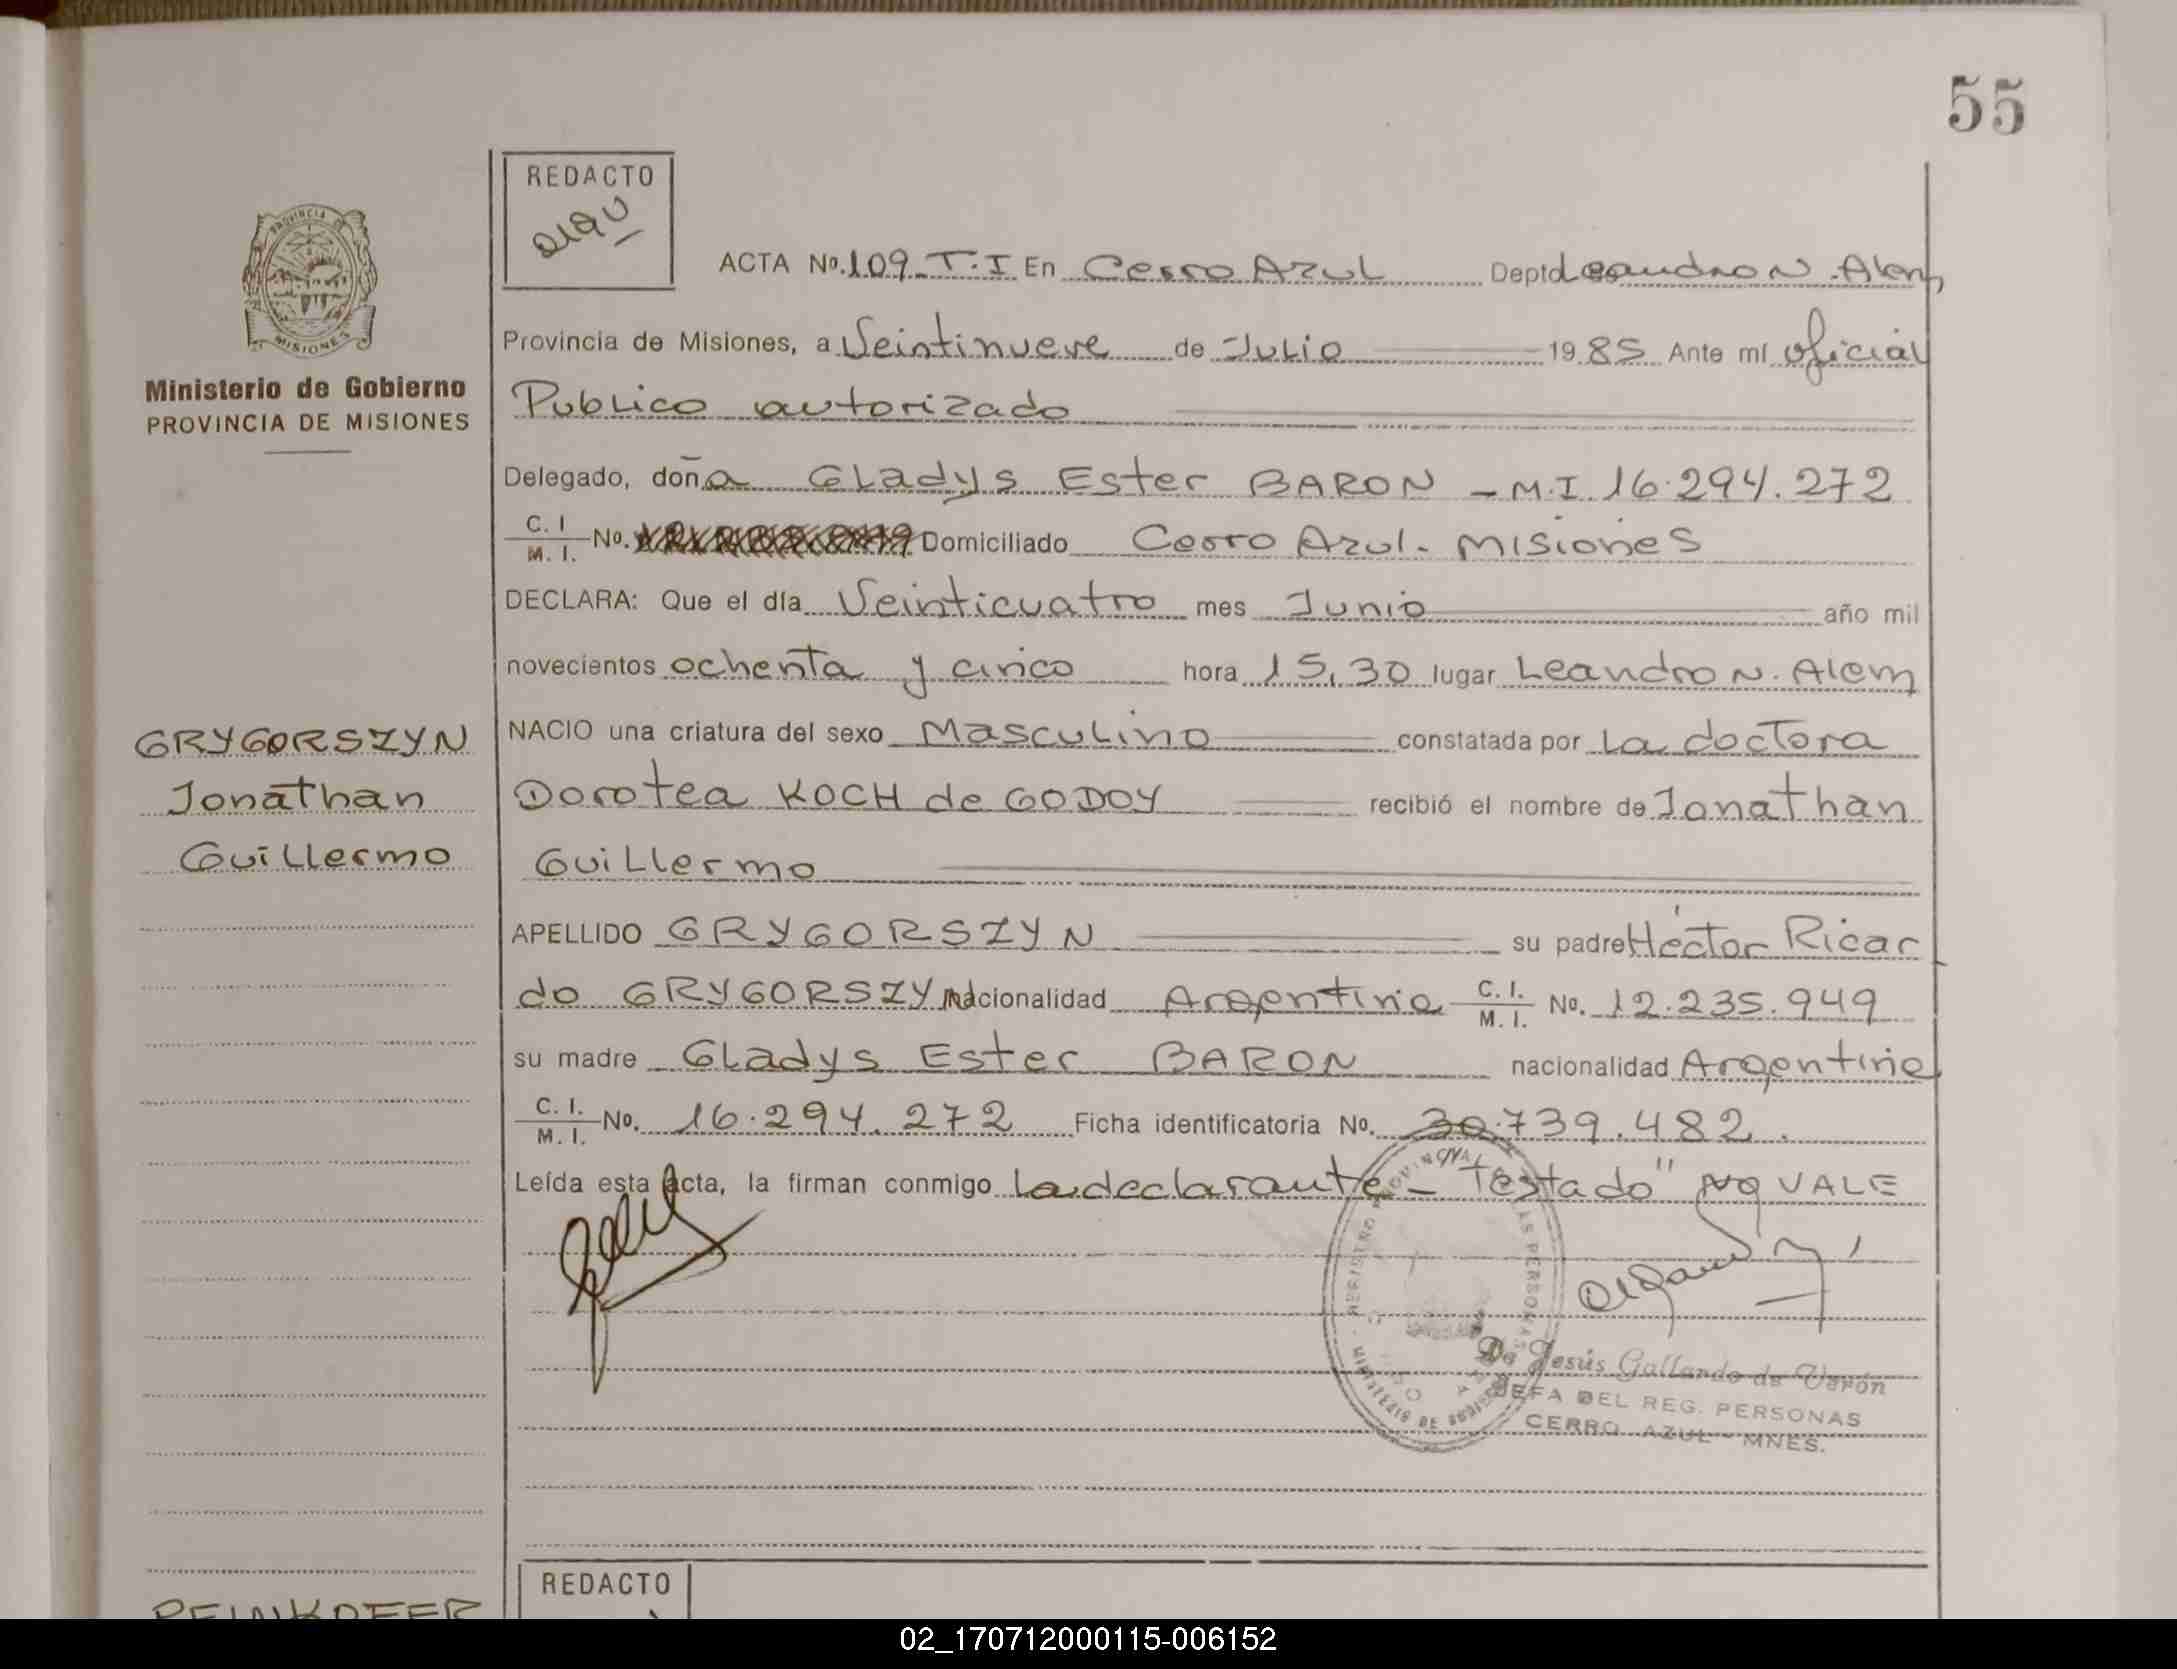 55
REDACTO
PROVINCIA DE
MISIONES
Ministerio de Gobierno
PROVINCIA DE MISIONES
ACTA Nº.109-T.I En Cerro Azul Depto Leandro N. Alem
Provincia de Misiones, a Veintinueve de Julio 1985 Ante mí oficial
Publico autorizado
Delegado, doña Gladys Ester BARON - M.I. 16.294.272
C. I. / M. I. Nº. Domiciliado Cerro Azul. Misiones
DECLARA: Que el día Veinticuatro mes Junio año mil
novecientos ochenta y cinco hora 15,30 lugar Leandro N. Alem
NACIO una criatura del sexo Masculino constatada por la doctora
Dorotea KOCH de GODOY recibió el nombre de Jonathan
Guillermo
GRYGORSZYN
Jonathan
Guillermo
APELLIDO GRYGORSZYN su padre Héctor Ricar
do GRYGORSZYN nacionalidad Argentina C. I. / M. I. Nº. 12.235.949
su madre Gladys Ester BARON nacionalidad Argentina
C. I. / M. I. Nº. 16.294.272 Ficha identificatoria Nº. 30.739.482.
Leída esta acta, la firman conmigo la declarante - "Testado" NO VALE
de Jesús Gallardo de Verón
JEFA DEL REG. PERSONAS
CERRO AZUL - MNES.
REDACTO
02_170712000115-006152